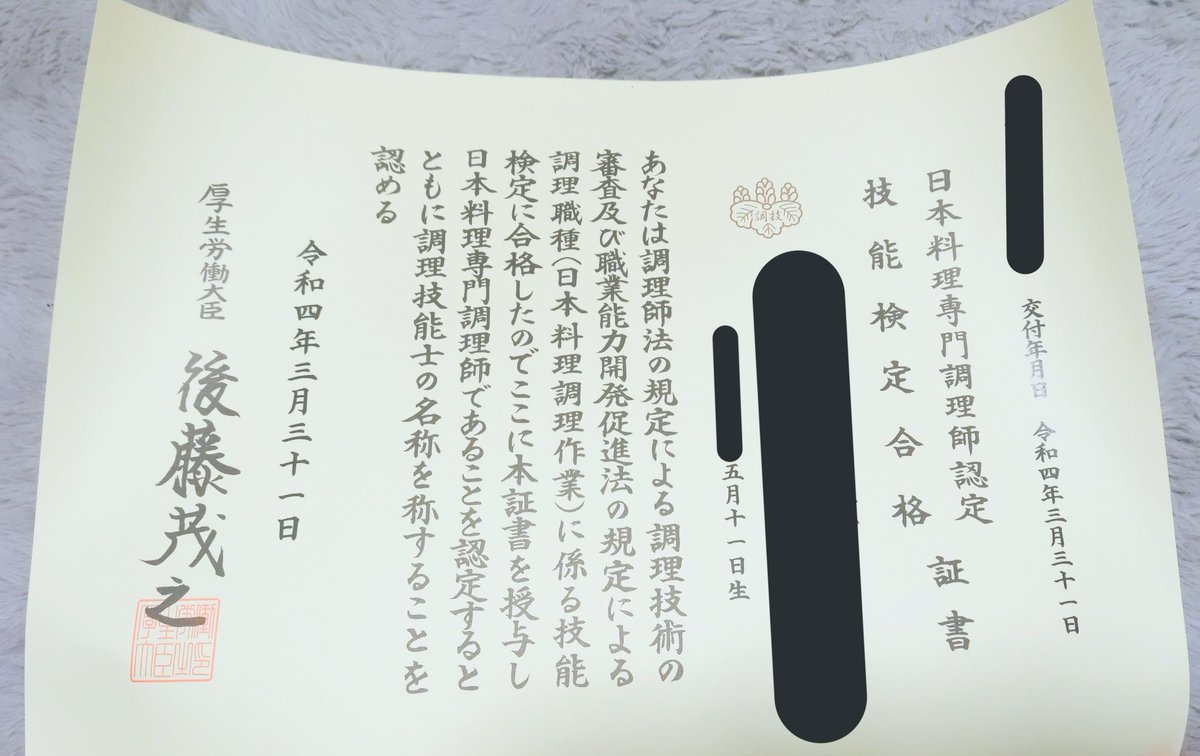 交付年月日 令和四年三月三十一日
日本料理専門調理師認定
技能検定合格
証書
五月十一日生
調技
あなたは調理師法の規定による調理技術の
審査及び職業能力開発促進法の規定による
調理職種(日本料理調理作業)に係る技能
検定に合格したのでここに本証書を授与し
日本料理専門調理師であることを認定すると
ともに調理技能士の名称を称することを
認める
令和四年三月三十一日
厚生労働大臣 後藤茂之
厚生労働大臣之印